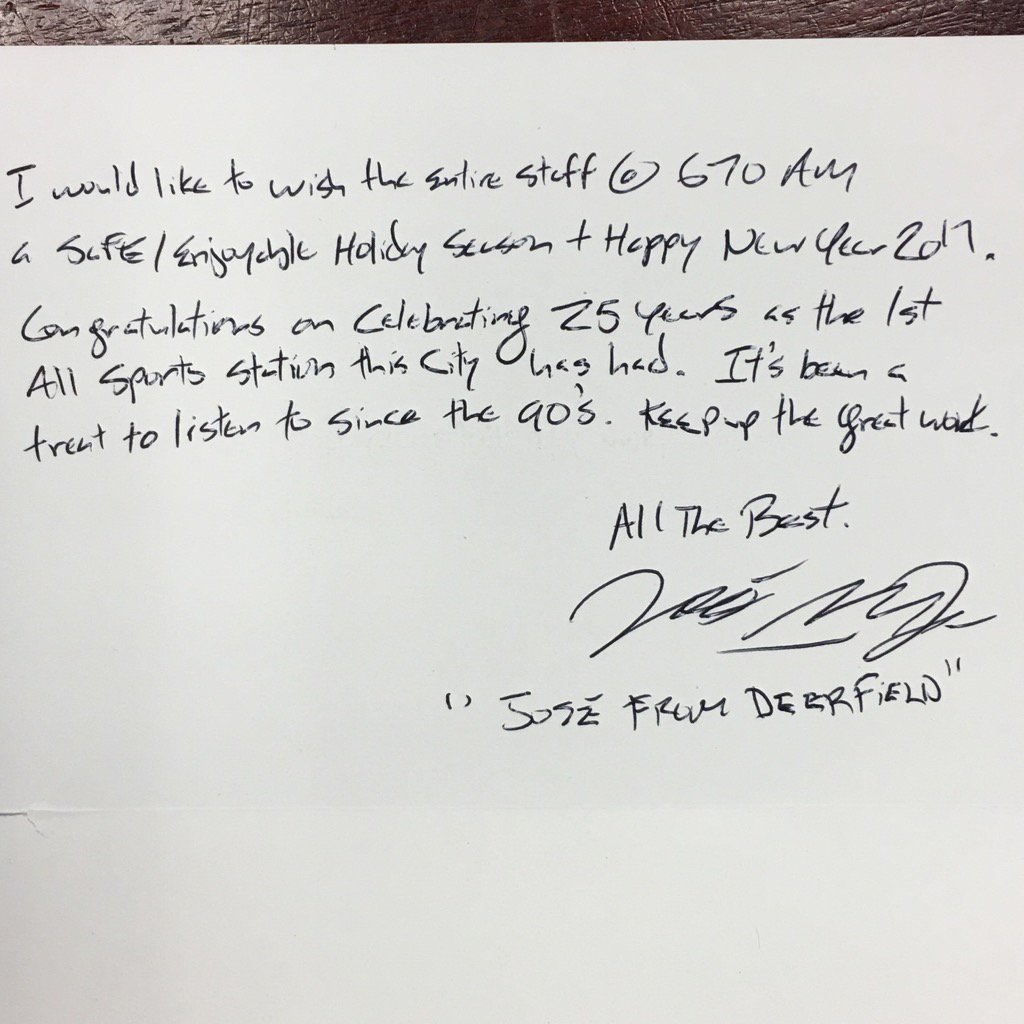 I would like to wish the entire staff @ 670 AM
a SafE/Enjoyable Holiday Season + Happy New Year 2017.
Congratulations on Celebrating 25 years as the 1st
All Sports station this City has had. It's been a
treat to listen to since the 90's. Keep up the great work.
All The Best.
José
"José From Deerfield"